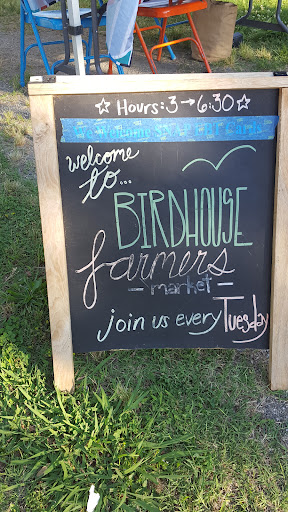 ☆ Hours: 3 → 6:30 ☆
welcome
to...
BIRDHOUSE
farmers
- market -
join us every Tuesday